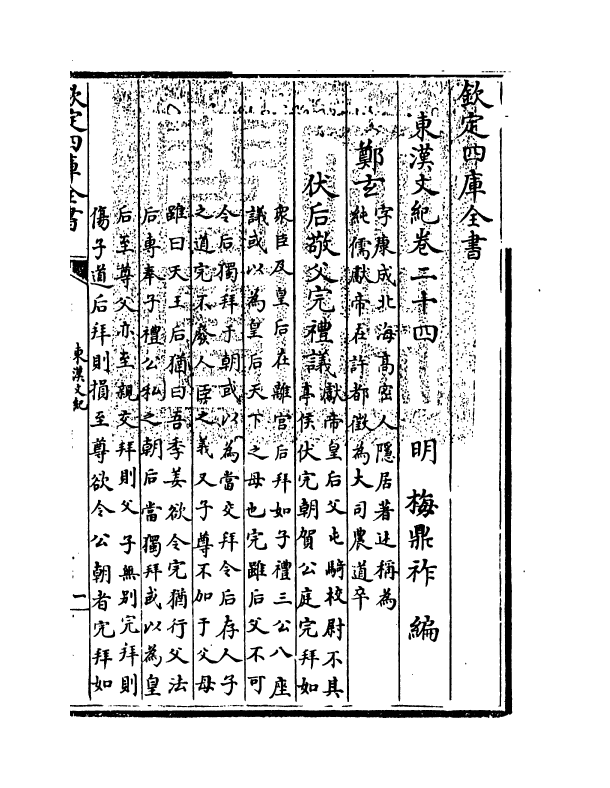 欽定四庫全書
東漢文紀卷二十四　明　梅鼎祚　編
鄭玄
字康成北海高密人隱居著述稱為
純儒獻帝在許都徵為大司農道卒
伏后敬父完禮議
獻帝皇后父屯騎校尉不其
亭侯伏完朝賀公庭完拜如
衆臣及皇后在離宮后拜如子禮三公八座
議或以為皇后天下之母也完雖后父不可
令后獨拜于朝或以為當交拜令后存人子
之道完不廢人臣之義又子尊不加于父母
雖曰天王后猶曰吾季姜欲令完猶行父法
后專奉子禮公私之朝后當獨拜或以為皇
后至尊父亦至親交拜則父子無別完拜則
傷子道后拜則損至尊欲令公朝者完拜如
欽定四庫全書
東漢文紀
一